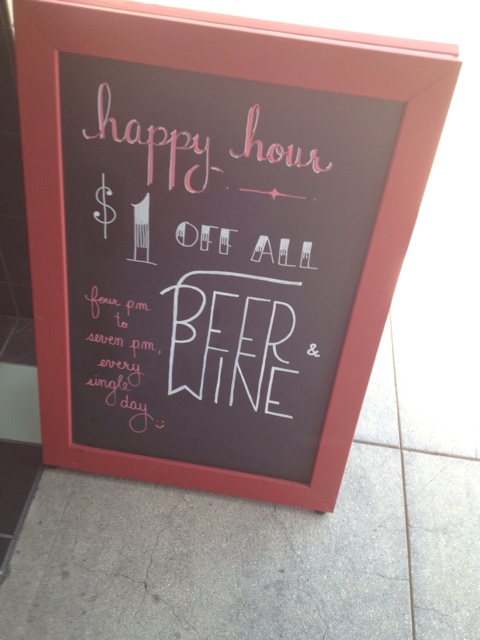 happy hour
$1 OFF ALL
BEER &
WINE
four p.m.
to
seven p.m,
every
single
day